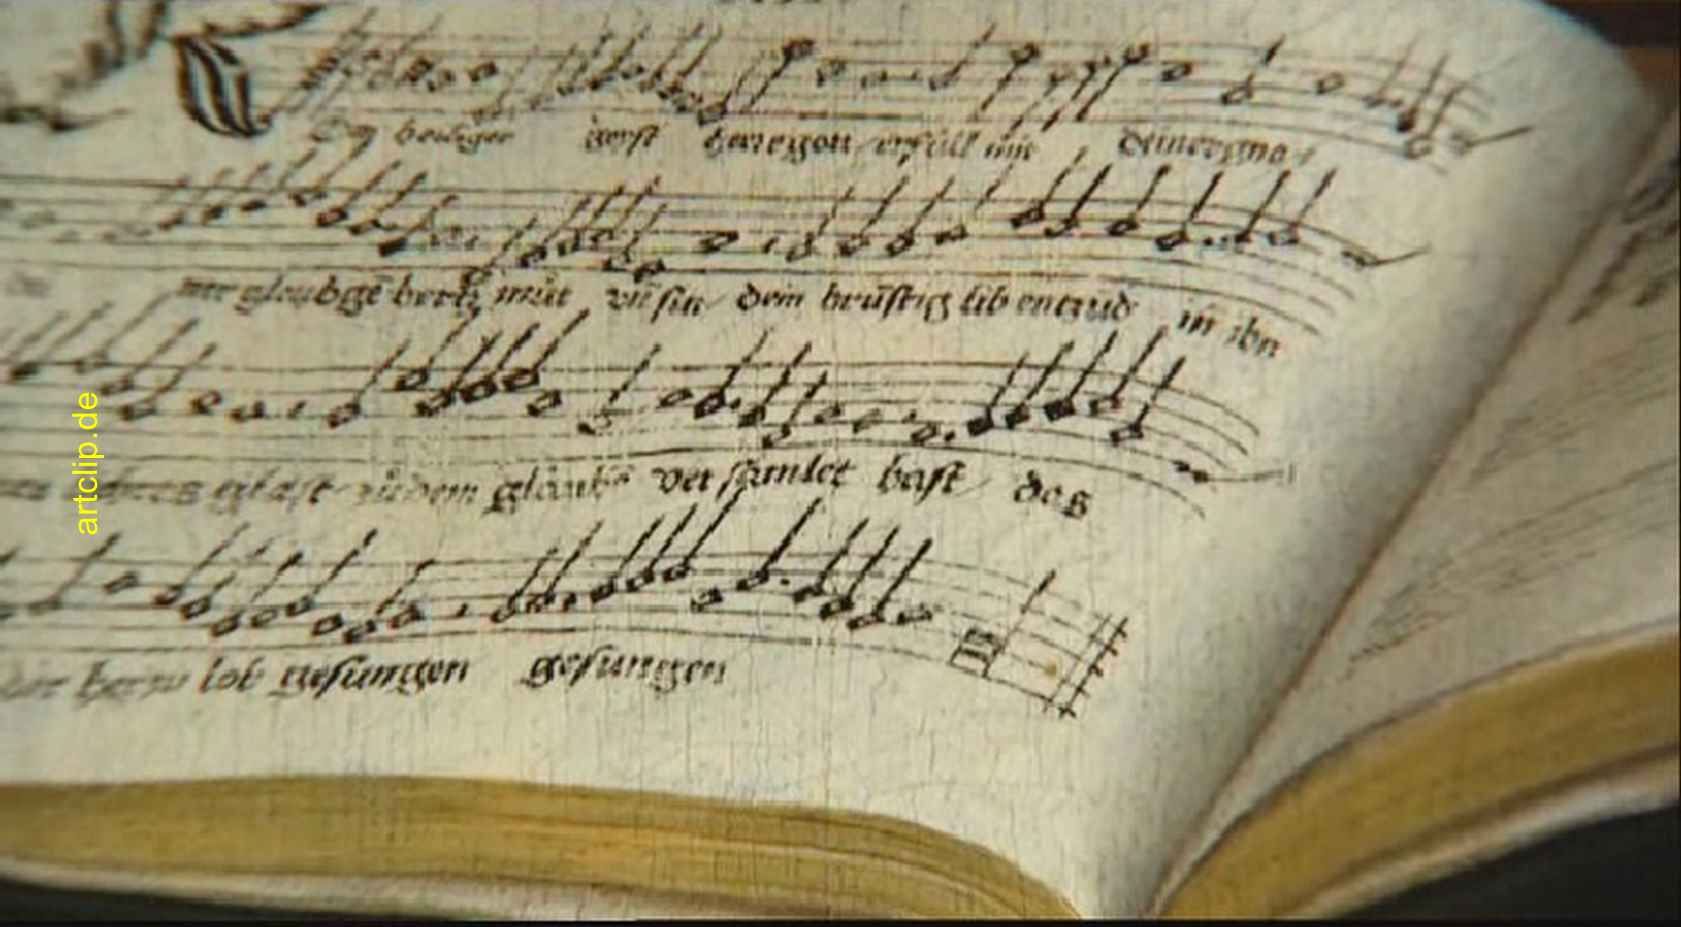 heiliger geyst herregott erfüll mit deiner gnad
gleubgē hertz müt vn̄ sin dein brüstig lib entzud in ihn
glast zu dem glaubē versamlet hast das
herr lob gesungen gesungen
artclip.de